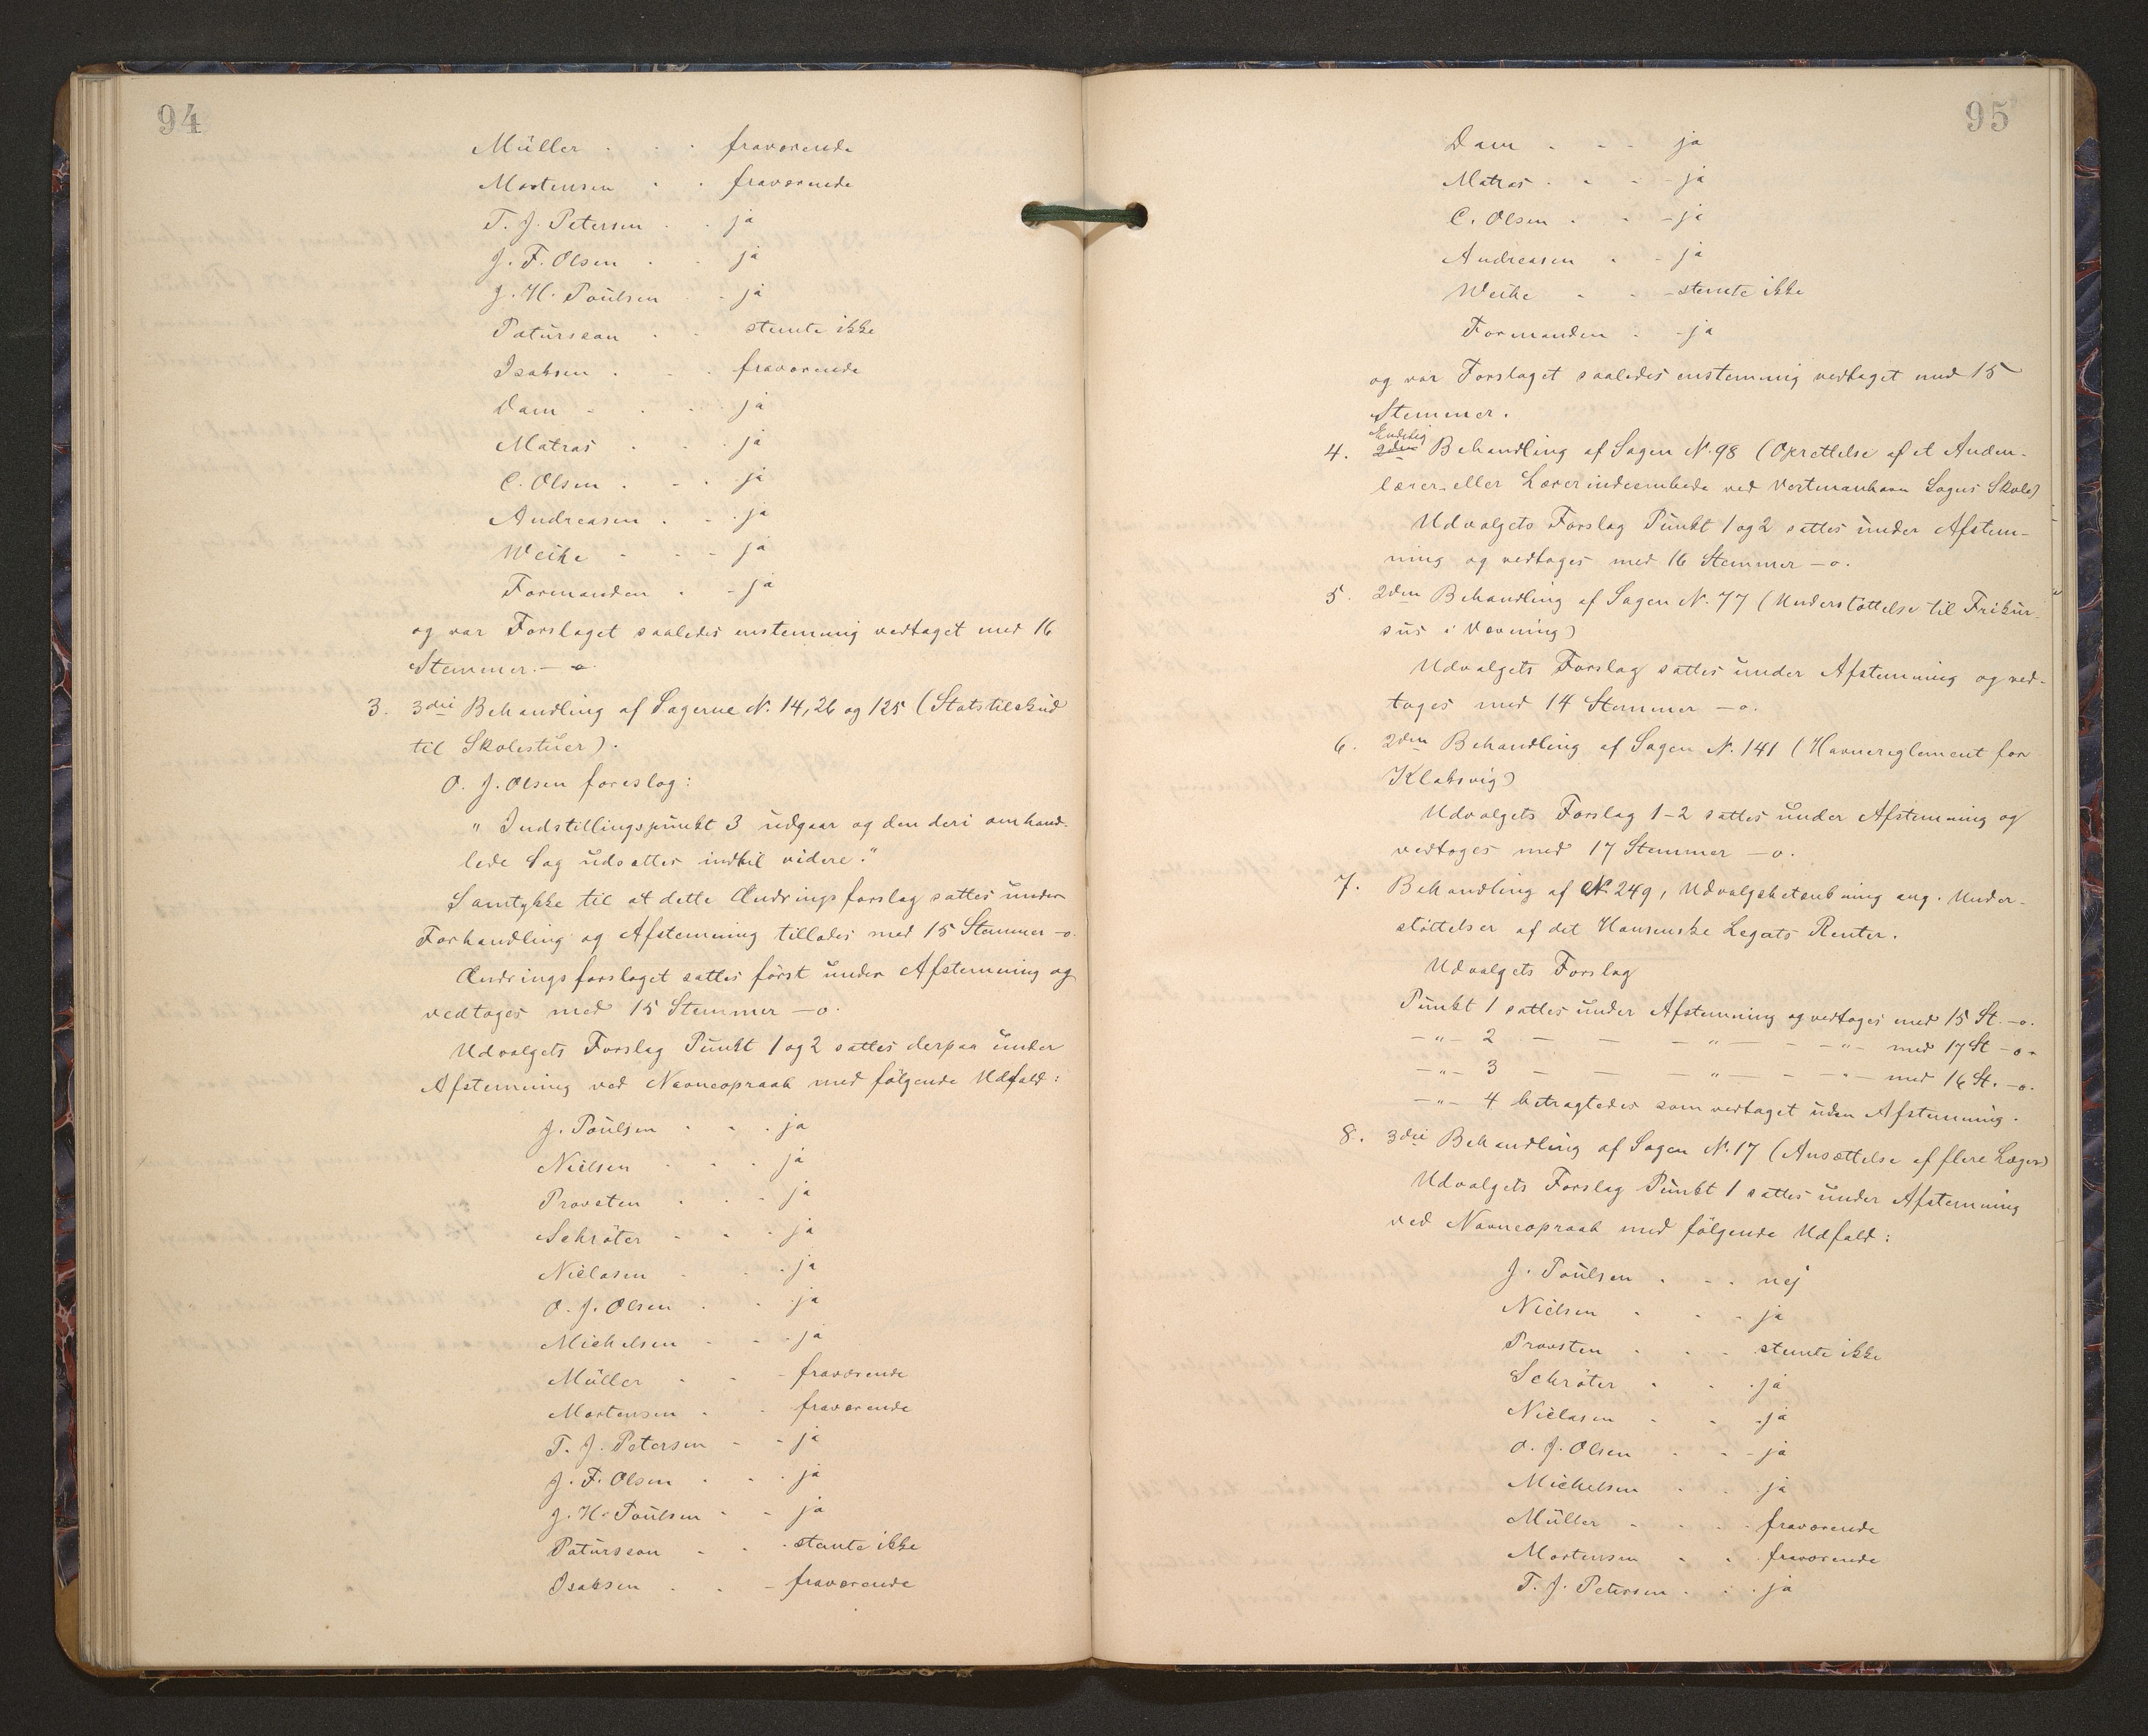 94
Müller - - - fraværende
Mortensen - - fraværende
T. J. Petersen - - ja
J. F. Olsen - - ja
J. H. Poulsen - - ja
Patursson - - stemte ikke
Isaksen - - - fraværende
Dam - - - ja
Matras - - - ja
C. Olsen - - - ja
Andreasen - - - ja
Weihe - - - ja
Formanden - - ja
og var Forslaget saaledes enstemmig vedtaget med 16
Stemmer. — o.
3. 3die Behandling af Sagerne N. 14, 26 og 125 (Statstilskud
til Skolestuer).
O. J. Olsen foreslog:
"Indstillingspunkt 3 udgaar og den deri omhand-
lede Sag udsættes indtil videre."
Samtykke til at dette Ændringsforslag sattes under
Forhandling og Afstemning tillodes med 15 Stemmer — o.
Ændringsforslaget sattes först under Afstemning og
vedtoges med 15 Stemmer — o.
Udvalgets Forslag Punkt 1 og 2 sattes derpaa under
Afstemning ved Navneopraab med fölgende Udfald:
J. Poulsen - - - ja
Nielsen - - - ja
Provsten - - - ja
Schröter - - - ja
Niclasen - - - ja
O. J. Olsen - - ja
Michelsen - - - ja
Müller - - - fraværende
Mortensen - - fraværende
T. J. Petersen - - ja
J. F. Olsen - - - ja
J. H. Poulsen - - ja
Patursson - - - stemte ikke
Isaksen - - - fraværende
95
Dam - - - ja
Matras - - - ja
C. Olsen - - - ja
Andreasen - - ja
Weihe - - - stemte ikke
Formanden - - ja
og var Forslaget saaledes enstemmig vedtaget med 15
Stemmer.
Endelig
4. 2den Behandling af Sagen N. 98 (Oprettelse af et Anden-
lærer- eller Lærerindeembede ved Vestmanhavn Sogns Skole)
Udvalgets Forslag Punkt 1 og 2 sattes under Afstem-
ning og vedtoges med 16 Stemmer — o.
5. 2den Behandling af Sagen N. 77 (Understöttelse til Frikur-
sus i Vævning)
Udvalgets Forslag sattes under Afstemning og ved-
toges med 14 Stemmer — o.
6. 2den Behandling af Sagen N. 141 (Havnereglement for
Klaksvig)
Udvalgets Forslag 1-2 sattes under Afstemning og
vedtoges med 17 Stemmer — o.
7. Behandling af N. 249, Udvalgsbetænkning ang. Under-
stöttelser af det Hansenske Legats Renter.
Udvalgets Forslag
Punkt 1 sattes under Afstemning og vedtoges med 15 St. — o.
— " — 2 — — — " — — — " — med 17 St — o —
— " — 3 — — — " — — — " — med 16 St. — o.
— " — 4 betragtedes som vedtaget uden Afstemning.
8. 3die Behandling af Sagen N. 17 (Ansættelse af flere Læger)
Udvalgets Forslag Punkt 1 sattes under Afstemning
ved Navneopraab med fölgende Udfald:
J. Poulsen - - - nej
Nielsen - - - ja
Provsten - - - stemte ikke
Schröter - - - ja
Niclasen - - - ja
O. J. Olsen - - - ja
Michelsen - - - ja
Müller - - - - fraværende
Mortensen - - - fraværende
T. J. Petersen - - - ja